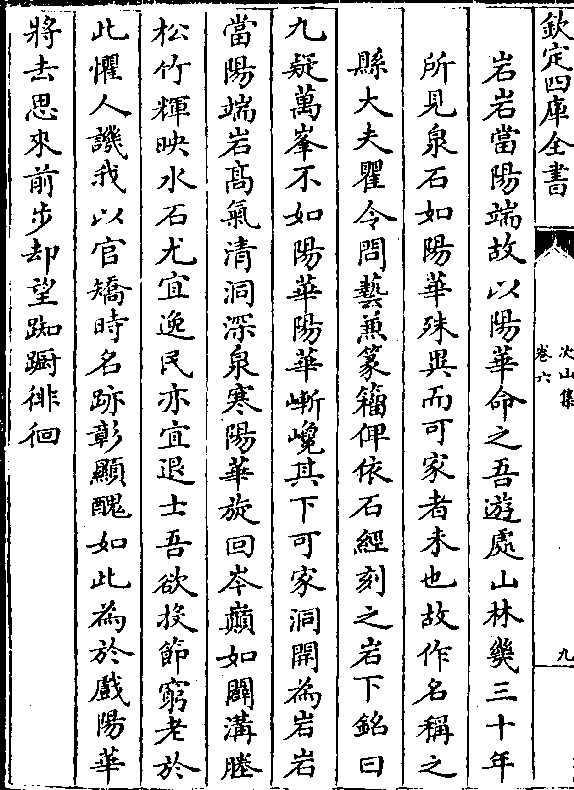 欽定四庫全書
次山集
卷六
九
岩岩當陽端故以陽華命之吾遊處山林幾三十年
所見泉石如陽華殊異而可家者未也故作名稱之
縣大夫瞿令問藝兼篆籀俾依石經刻之岩下銘曰
九疑萬峯不如陽華陽華嶄巉其下可家洞開為岩岩
當陽端岩高氣清洞深泉寒陽華旋回岑巔如闢溝塍
松竹輝映水石尤宜逸民亦宜退士吾欲投節窮老於
此懼人譏我以官矯時名跡彰顯醜如此為於戲陽華
將去思來前步却望踟蹰徘徊